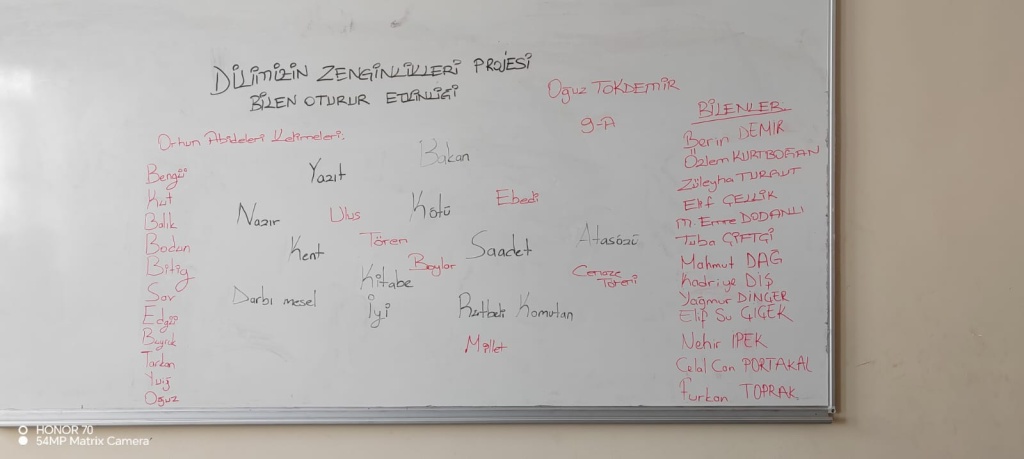 DİLİMİZİN ZENGİNLİKLERİ PROJESİ
BİLEN OTURUR ETKİNLİĞİ
Oğuz TOKDEMİR
9-A
Orhun Abideleri Kelimeleri:
Bengü
Kut
Balık
Bodun
Bitig
Sav
Edgü
Buyruk
Tarkan
Yuğ
Oğuz
Bakan
Yazıt
Nazır
Ulus
Kötü
Ebedi
Kent
Tören
Saadet
Atasözü
Boylar
Kitabe
Cenaze Töreni
Darbı mesel
İyi
Rütbeli Komutan
Millet
BİLENLER
Berin DEMİR
Özlem KURTBOĞAN
Züleyha TURGUT
Elif ÇELLİK
M. Emre DODANLI
Tuba ÇİFTÇİ
Mahmut DAĞ
Kadriye DİŞ
Yağmur DİNÇER
Elif Su ÇİÇEK
Nehir İPEK
Celal Can PORTAKAL
Furkan TOPRAK
HONOR 70
54MP Matrix Camera